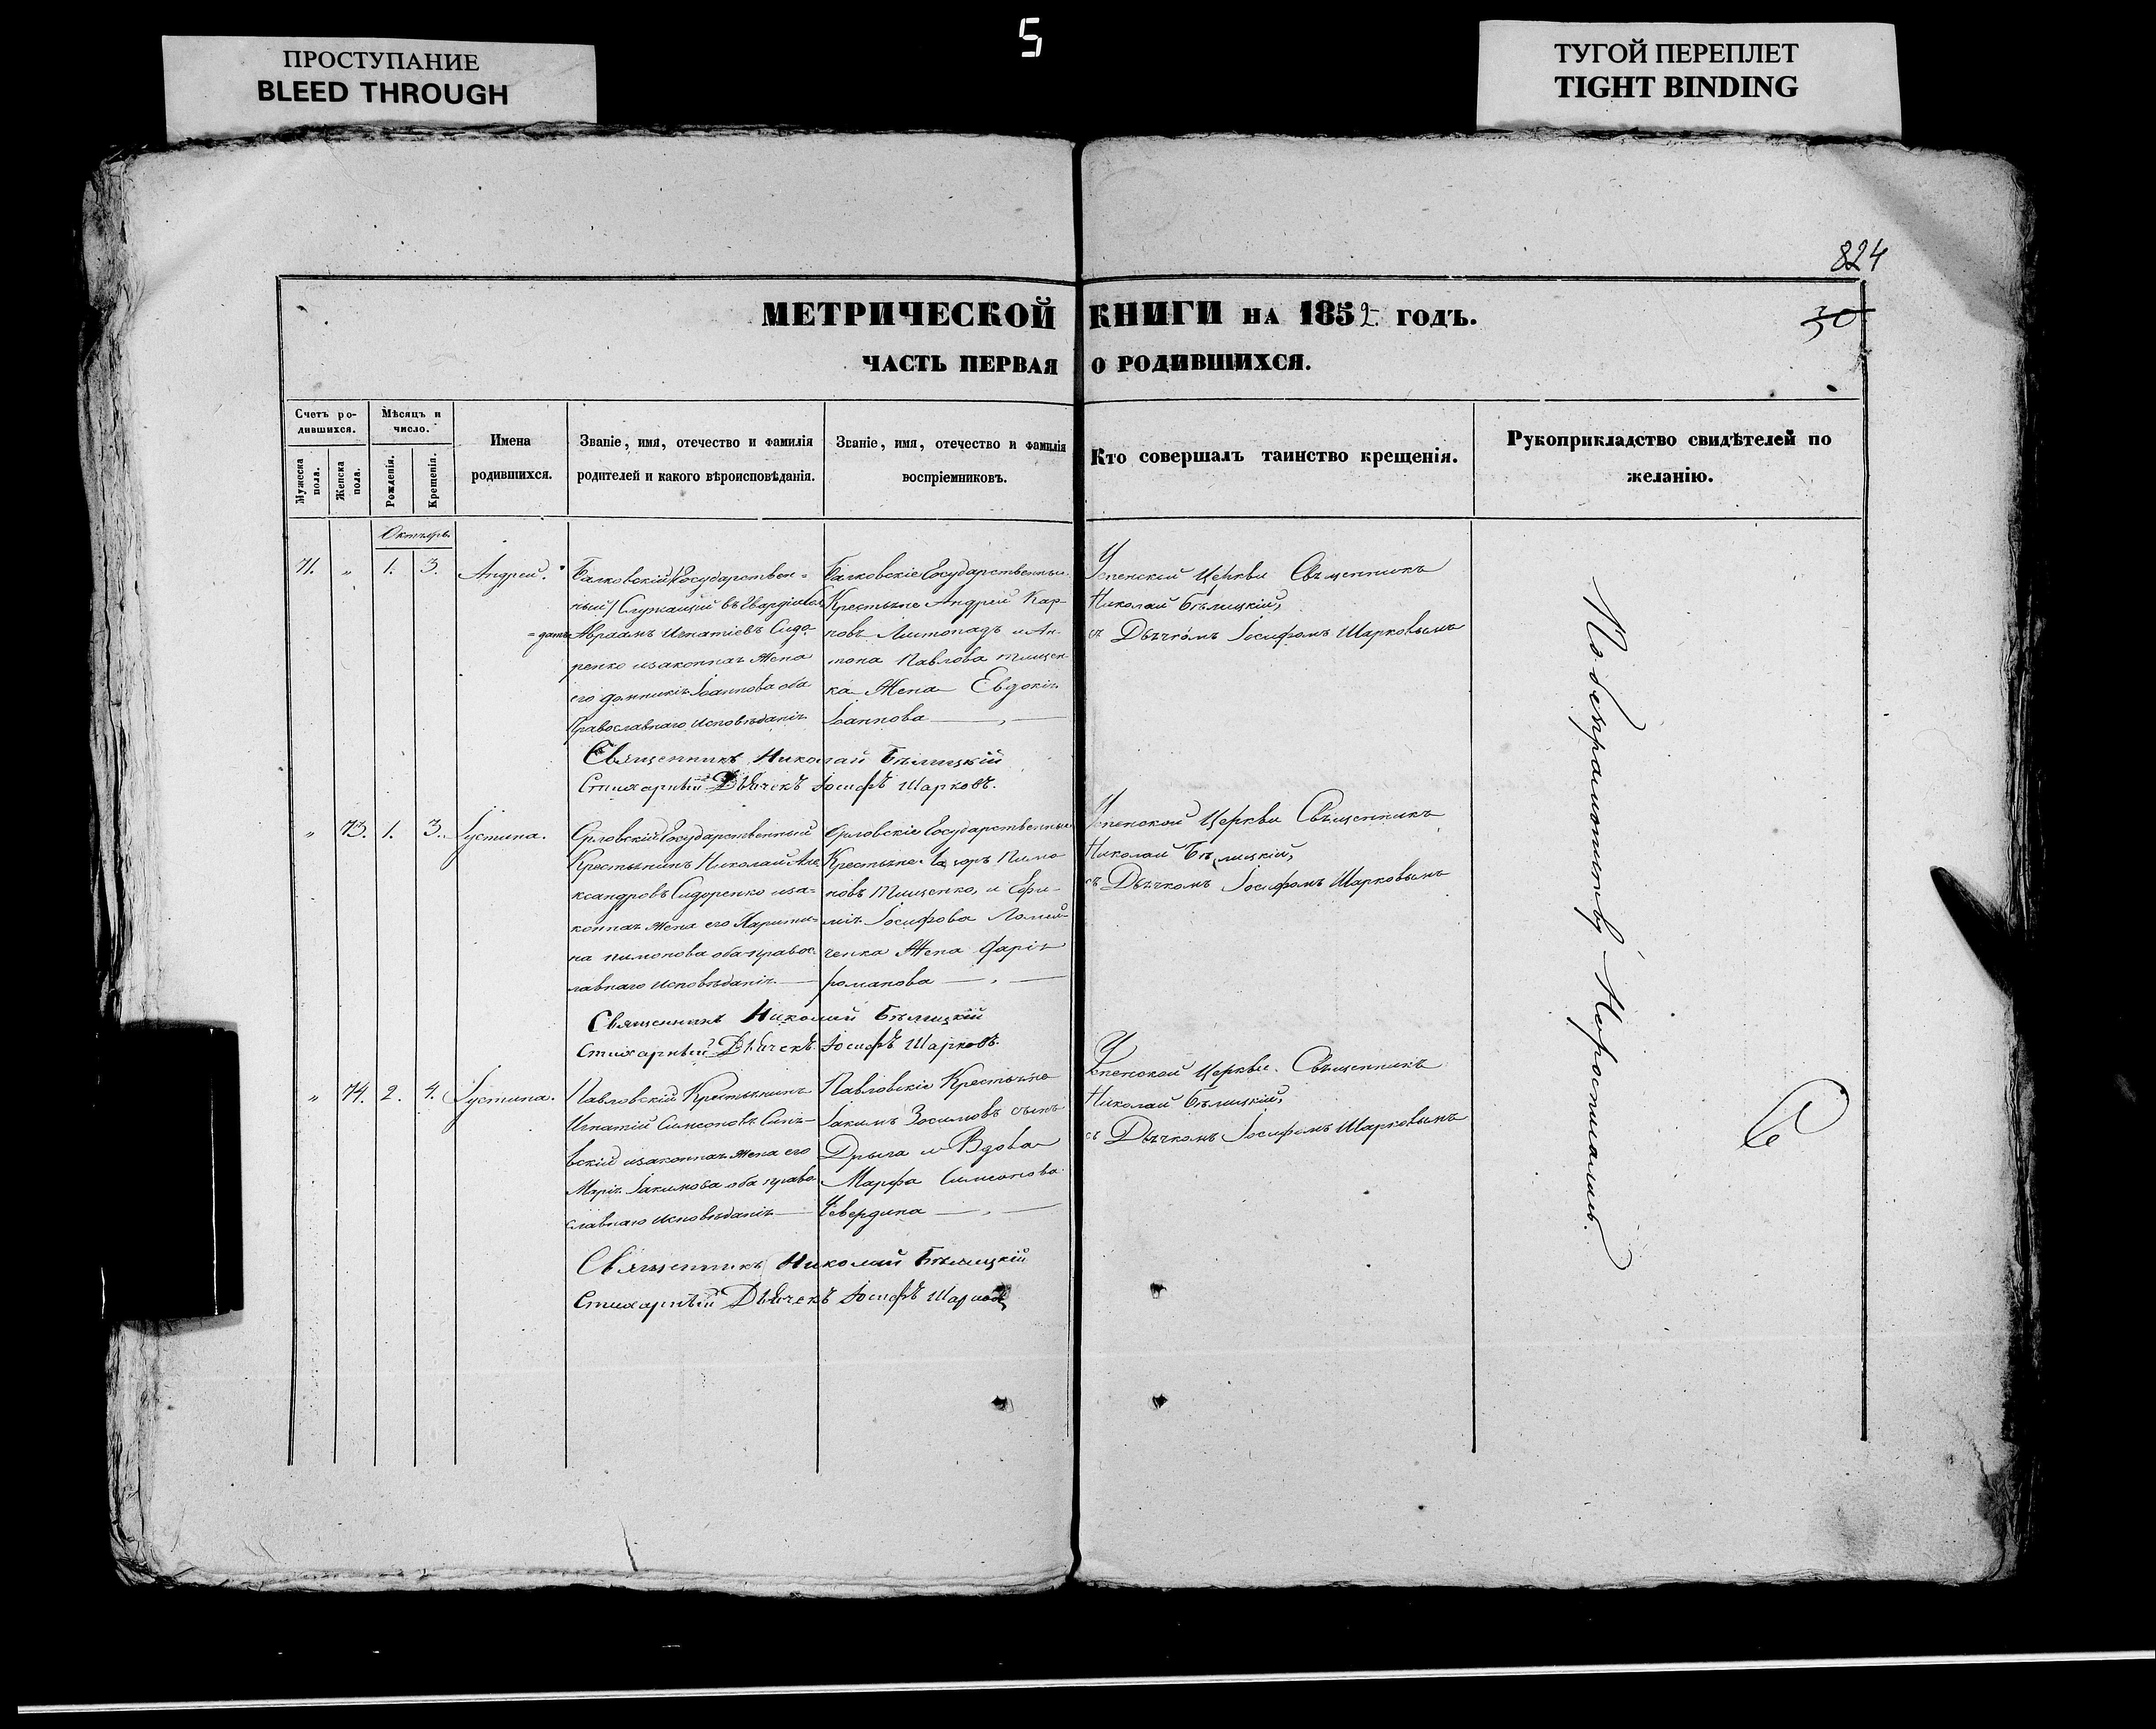 5
ПРОСТУПАНИЕ
BLEED THROUGH
ТУГОЙ ПЕРЕПЛЕТ
TIGHT BINDING
824
30
МЕТРИЧЕСКОЙ КНИГИ НА 1852 ГОДЪ.
ЧАСТЬ ПЕРВАЯ О РОДИВШИХСЯ.
Счетъ ро-
дившихся.
Мужеска пола.
Женска пола.
Мѣсяцъ и
число.
Рожденія.
Крещенія.
Имена
родившихся.
Званіе, имя, отечество и фамилія
родителей и какого вѣроисповѣданія.
Званіе, имя, отечество и фамилія
воспріемниковъ.
Кто совершалъ таинство крещенія.
Рукоприкладство свидѣтелей по
желанію.
Октябрь
71. " 1. 3. Андрей.
Балковскій Государствен=
ный Служащій въ Гвардіи Сол
=датъ Авраамъ Игнатіевъ Сидо
ренко изаконная Жена
его Домникія Іоаннова оба
Православнаго Исповѣданія
Балковскіе Государственные
Крестьяне Андрей Кар-
повъ Листопадъ и Ан-
тона Павлова Тищен
ка Жена Евдокія
Іоаннова
Успенской Церкви Священникъ
Николай Бѣлицкій,
съ Дьячкомъ Іосифомъ Шарковымъ
Священникъ Николай Бѣлицкій
Стихарный Дьячекъ Іосифъ Шарковъ.
" 73. 1. 3. Іустина.
Орловскій Государственный
Крестьянинъ Николай Але
ксандровъ Сидоренко иза=
конная Жена его Харити=
на Пимонова оба правос
лавнаго Исповѣданія
Орловскіе Государственные
Крестьяне Пимо
новъ Тищенко, и Ефи-
мія Іосифова Ломей
ченка Жена Дарія
романова
Успенской Церкви Священникъ
Николай Бѣлицкій,
съ Дьячкомъ Іосифомъ Шарковымъ
Священникъ Николай Бѣлицкій
Стихарный Дьячекъ Іосифъ Шарковъ.
" 74. 2. 4. Іустина.
Павловскій Крестьянинъ
Игнатій Симеоновъ Синя-
вскій изаконная Жена его
Марія Іакимова оба право
славнаго Исповѣданія
Павловскіе Крестьяне
Іакимъ Зосимовъ сынъ
Дрыга и Вдова
Марфа Симеонова
Чевердина
Успенской Церкви Священникъ
Николай Бѣлицкій,
съ Дьячкомъ Іосифомъ Шарковымъ
Священникъ Николай Бѣлицкій
Стихарный Дьячекъ Іосифъ Шарковъ
По безграмотству Неросписались.